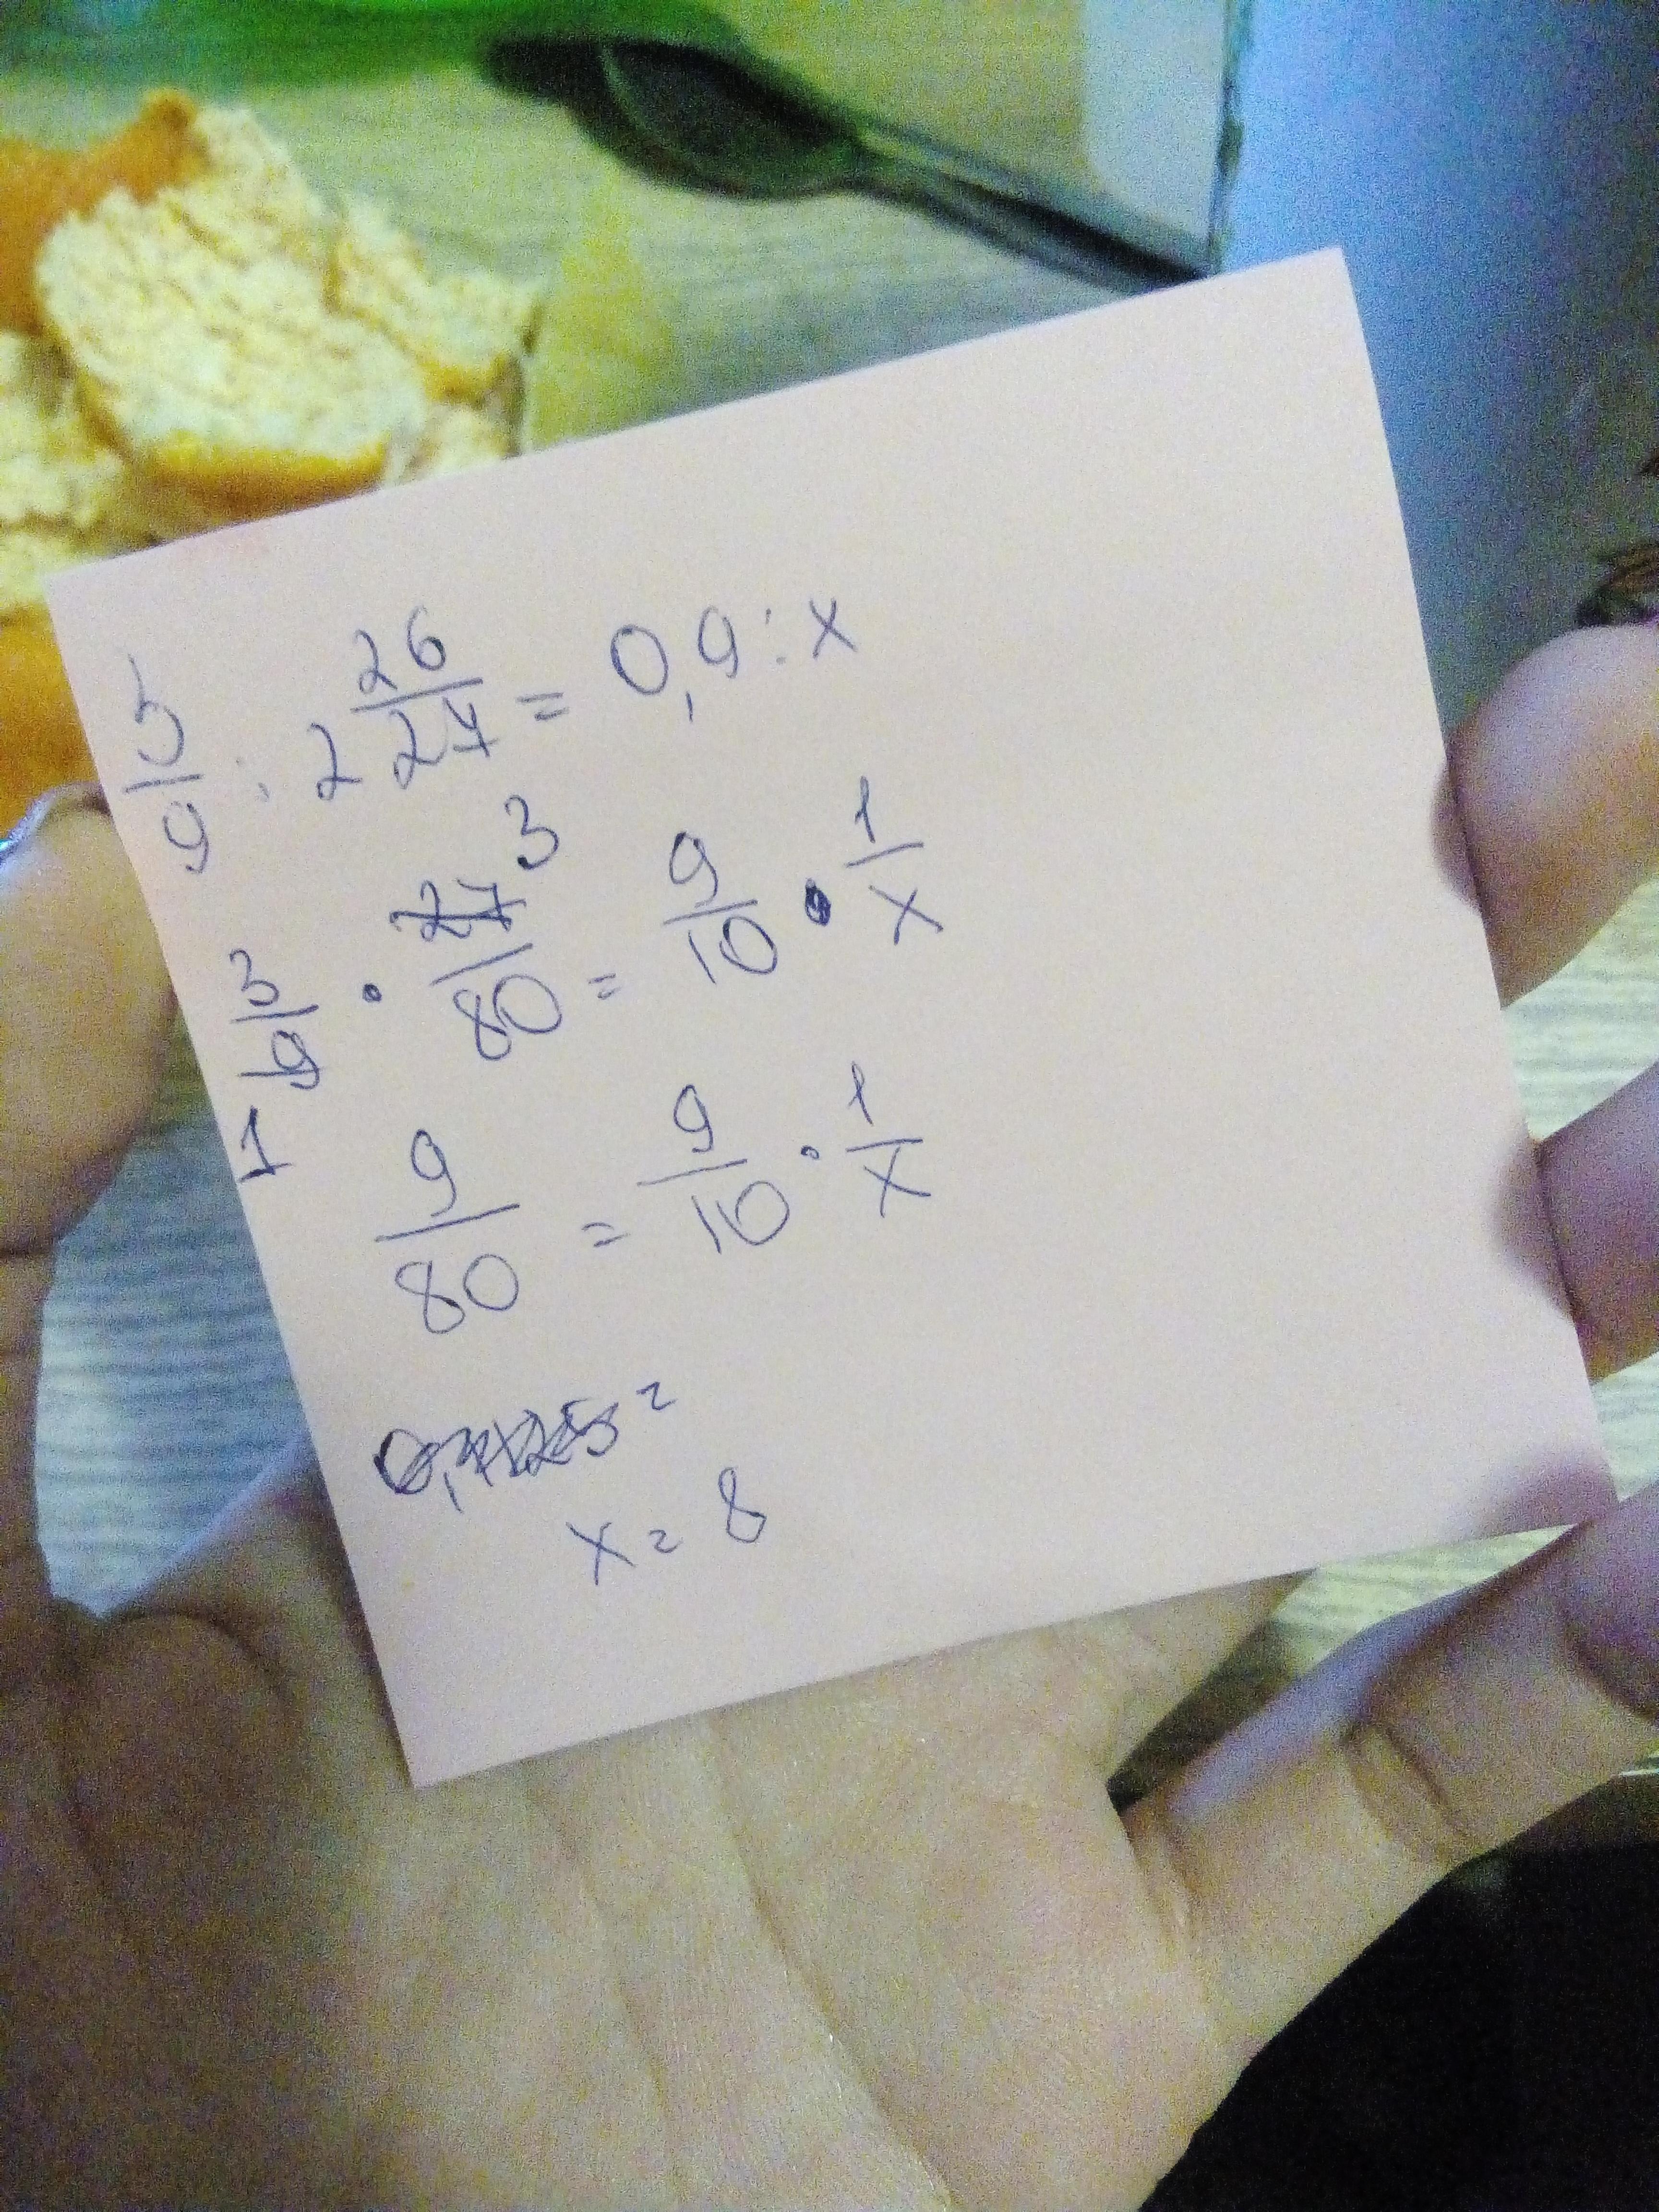 5/9 : 2 26/27 = 0,9 : x
3/9 1 · 27/80 3 = 9/10 · 1/x
9/80 = 9/10 · 1/x
=
x = 8